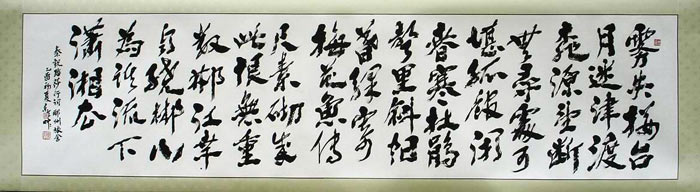 霧失樓台
月迷津渡
桃源望断
無尋處可
堪孤館閉
春寒杜鵑
聲里斜阳
暮驛寄
梅花魚傳
尺素砌成
此恨無重
數郴江幸
自繞郴山
為誰流下
瀟湘去
秦觀踏莎行詞郴州旅舍
乙酉初夏